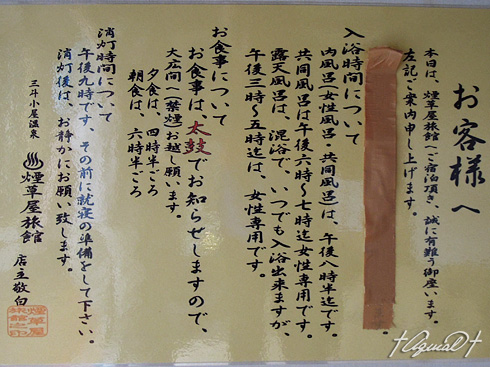 お客様へ
本日は、煙草屋旅館へご宿泊頂き、誠に有難う御座います。
左記ご案内申し上げます。
入浴時間について
内風呂(女性風呂・共同風呂)は、午後八時半迄です。
共同風呂は午後六時~七時迄女性専用です。
露天風呂は、混浴で、いつでも入浴出来ますが、
午後三時~五時迄は、女性専用です。
お食事について
お食事は、太鼓でお知らせしますので、
大広間(禁煙)お越し願います。
夕食は、四時半ごろ
朝食は、六時半ごろ
消灯時間について
午後九時です。その前に就寝の準備をして下さい。
消灯後は、お静かにお願い致します。
三斗小屋温泉
煙草屋旅館
店主敬白
煙草屋
旅館之印